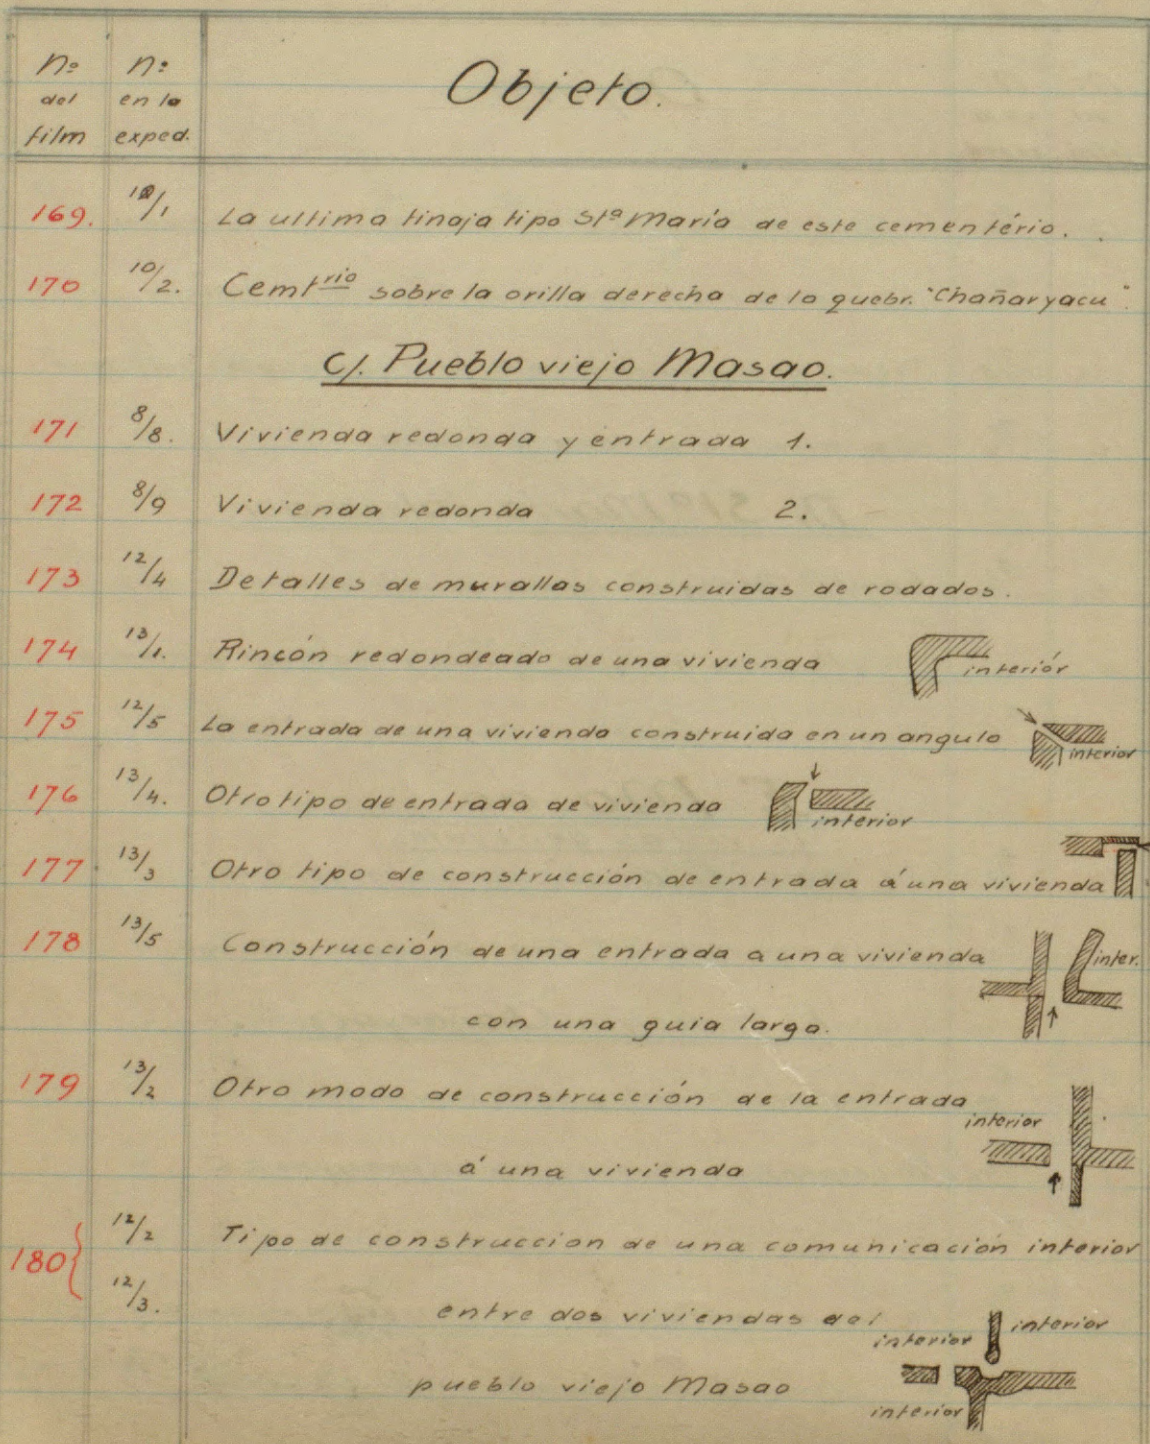 nº nº Objeto.
del en la
film exped.
169. 10/1 La ultima tinaja tipo Stª María de este cementério.
170 10/2. Cemtrio sobre la orilla derecha de la quebr. "Chañaryacu".
c/. Pueblo viejo Masao.
171 8/8. Vivienda redonda y entrada 1.
172 8/9 Vivienda redonda 2.
173 12/4 Detalles de murallas construidas de rodados.
174 13/1. Rincón redondeado de una vivienda interiór
175 12/5 La entrada de una vivienda construida en un angulo interior
176 13/4. Otro tipo de entrada de vivienda interior
177 13/3 Otro tipo de construcción de entrada á una vivienda
178 13/5 Construcción de una entrada a una vivienda inter.
con una guia larga.
179 13/2 Otro modo de construcción de la entrada interior
á una vivienda
180 12/2 Tipo de construccion de una comunicación interior
12/3. entre dos viviendas del interior interior
pueblo viejo Masao interior